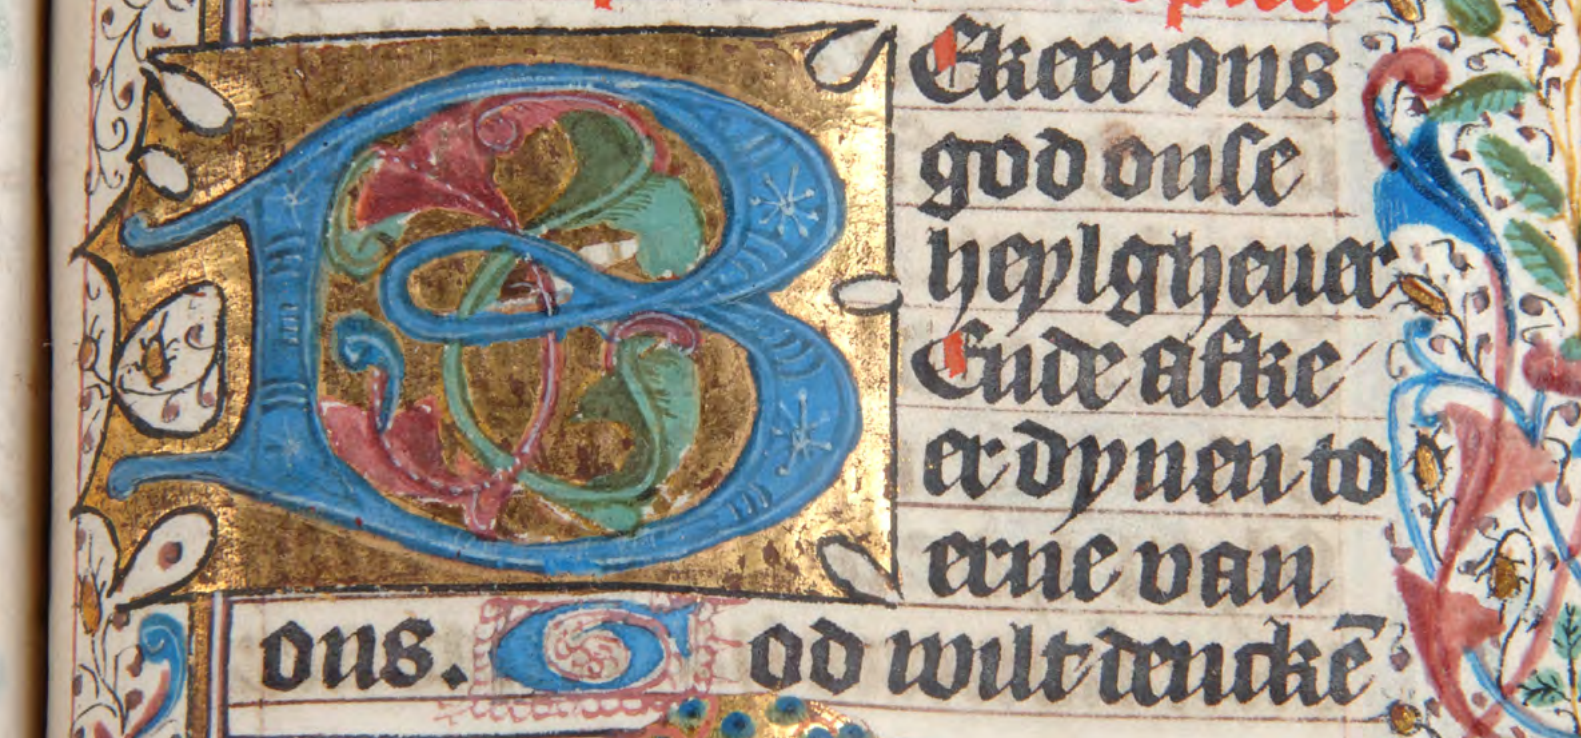 BEkeer ons
god onse
heylgheuer
Ende afke
er dynen to
erne van
ons. God wilt denckē